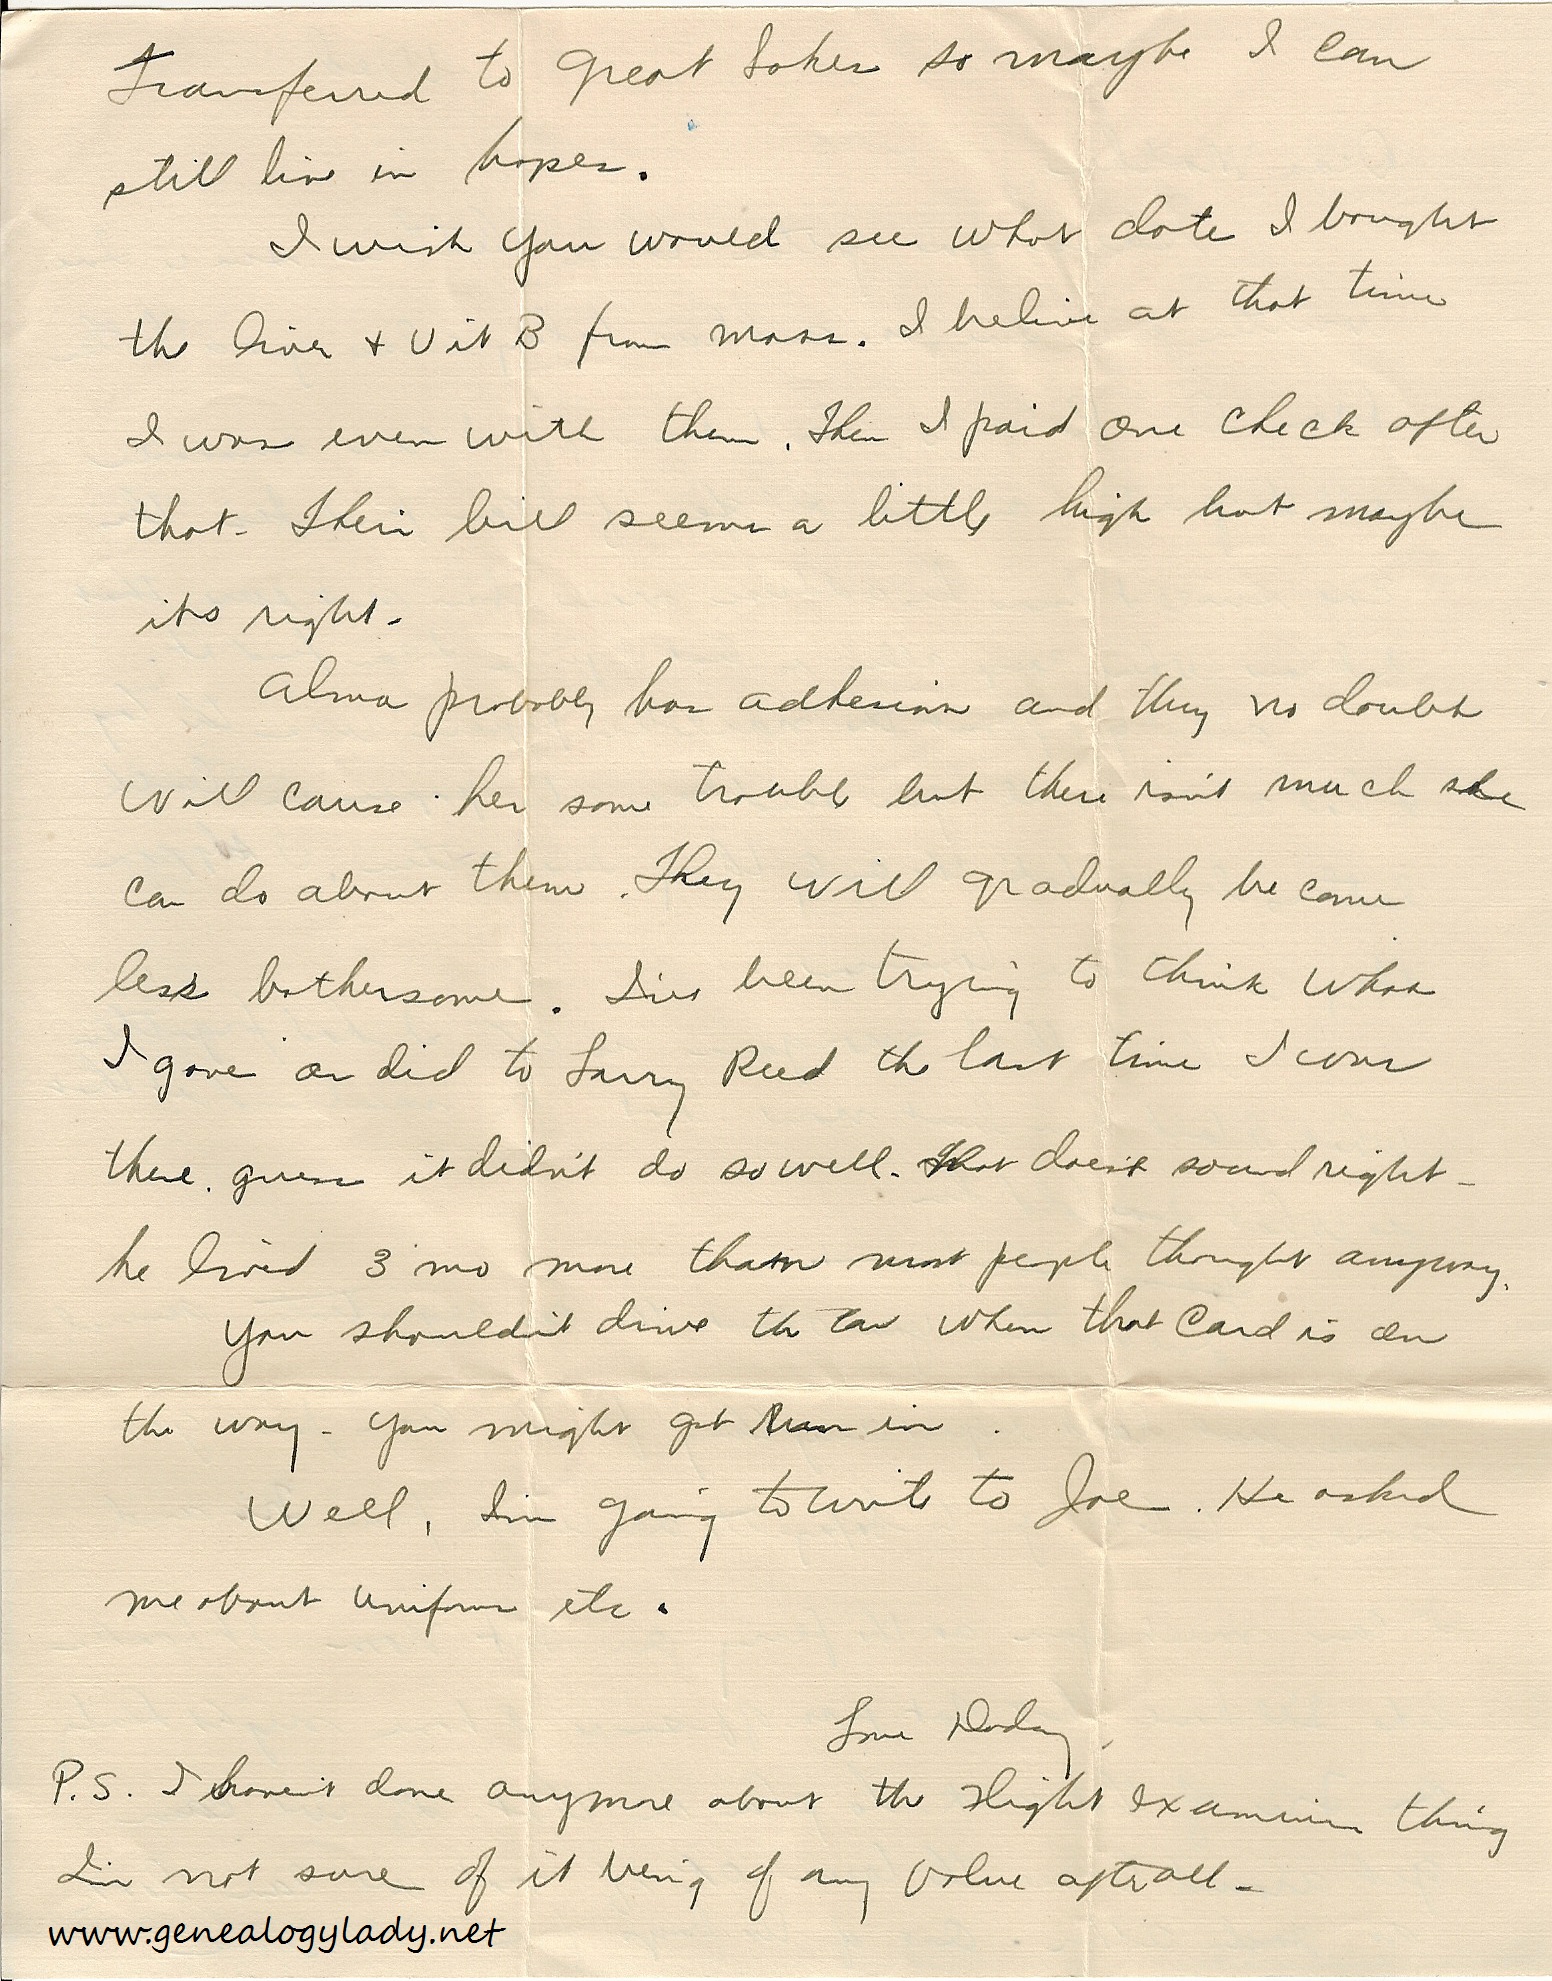 Transferred to Great Lakes so maybe I can
still live in hopes.
I wish you would see what date I bought
the liver + Vit B from Moss. I believe at that time
I was even with them. Then I paid one check after
that. Their bill seems a little high but maybe
its right.
Alma probably has adhesions and they no doubt
will cause her some trouble but there isn't much she
can do about them. They will gradually become
less bothersome. I've been trying to think what
I gave or did to Larry Reed the last time I was
there. guess it didn't do so well. That doesn't sound right -
he lived 3 mo more than most people thought anyway.
You shouldn't drive the car when that Card is on
the way - you might get Run in.
Well, I'm going to write to Joe. He asked
me about uniforms etc.
Love Daddy.
P.S. I haven't done anymore about the Flight Examiner thing
I'm not sure of it being of any value after all -
www.genealogylady.net